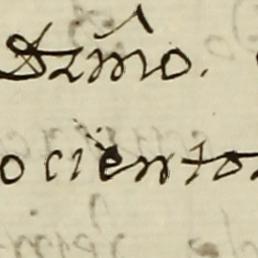 Dzmo.
ociento